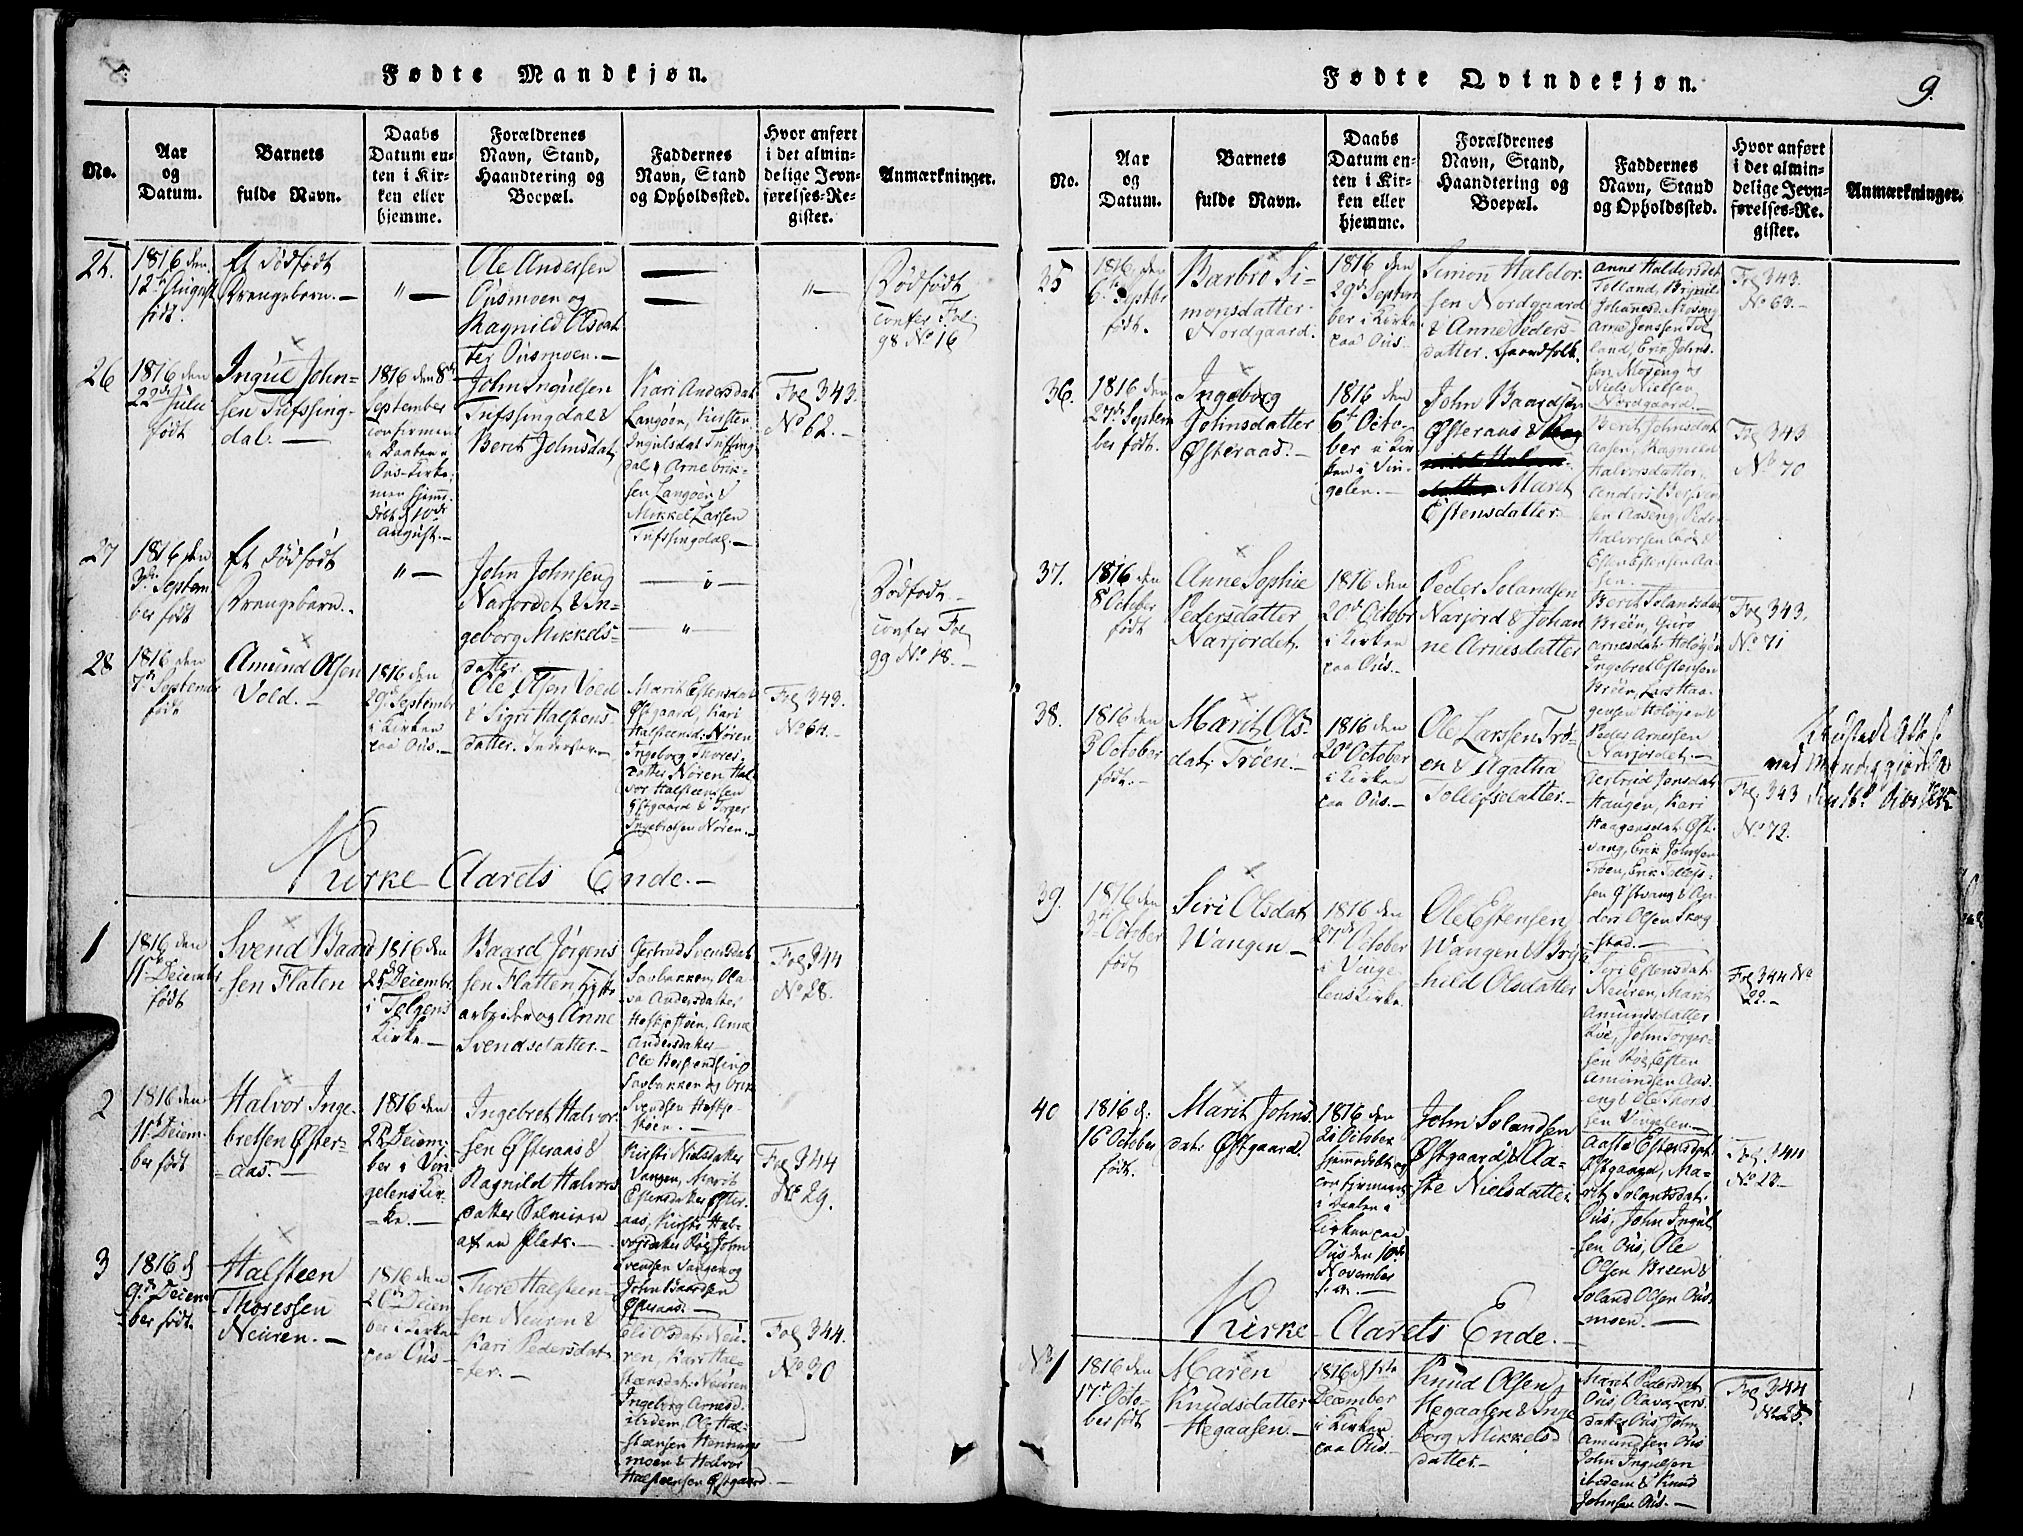 Fødte Mandkjøn.
No.
Aar
og
Datum.
Barnets
fulde Navn.
Daabs
Datum en-
ten i Kir-
ken eller
hjemme.
Forældrenes
Navn, Stand,
Haandtering og
Boepæl.
Faddernes
Navn, Stand
og Opholdssted.
Hvor anført
i det almin-
delige Jevn-
førelses-Re-
gister.
Anmærkninger.
1816 den
12te August
født.
Et Dødfødt
Drengebarn.
Ole Andersen
Ousmoen og
Ragnild Olsdat
ter Ousmoen.
Dødfødt
confer Fol
98 No 16
26
1816 den
22de Julii
født
Ingul John-
sen Tufssing-
dal.
1816 den 8de
September
confirmeret
Daaben i
Ous Kirke,
men hjem.
døbt d 10de
August.
John Ingulsen
Tufssingdal &
Berit Johnsdat
Kari Andersdat
Langøen, Kirsten
Ingulsdat Tufssing
dal, Arne Erik-
sen Langøen &
Mikkel Larsen
Tufssingdal.
Fol 343.
No 62.
27
1816 den
3die Septem
ber født
Et Dødfødt
Drengebarn.
John Johnsen
i Narjordet & In-
geborg Mikkels-
datter.
Dødfødt
confer Fol
99 No 18.
28
1816 den
7de Septembr
født
Amund Olsen
Vold.
1816 den
29de Septembr
i Kirken
paa Ous.
Ole Olsen Vold
& Sigri Halstens-
datter. Inderster.
Marit Estensdat
Østgaard, Kari
Halsteensd: Nøren
Ingeborg Thores-
datter Nøren Hal-
vor Halsteensen
Østgaard & Torger
Ingebretsen Nøren.
Fol 343.
No 64.
Kirke-Aarets Ende.
1
1816 den
11te Decembr
født
Svend Baard
sen Flaten
1816 den
25 Decembr
i Tolgens
Kirke.
Baard Jørgens
sen Flatten, Hytte
arbeider og Anne
Svendsdatter.
Gertrud Svendsdat
Saubakken, Ola-
va Andersdatter
Anne
Andersdatter
Ole
Saubakken og Erik
Svendsen
Fol 344
No 28.
2
1816 den
11te Decem-
ber født
Halvor Inge-
bretsen Øster-
aas.
1816 den
25 Decem-
ber i Vin-
gelens Kir-
ke.
Ingebret Halvor
sen Østeraas &
Ragnild Halvors
datter Selveiere
af en Plads.
Kirsti Nielsdatter
Vangen, Marit
Estensdatter Øster
aas, Kirsti Hal-
vorsdatter Røe, John
Svendsen Vangen og
John Baardsen
Østeraas.
Fol 344
No 29.
3
1816 d
9de Decem-
ber født.
Halsteen
Thoressen
Neuren.
1816 den
26de Decem-
ber i Kirken
paa Ous
Thore Halsteen-
sen Neuren &
Kari Pedersdat-
ter.
Eli Olsdat: Neu-
ren, Kari Hal-
steensdat: Neuren
Ingeborg Arnesd.
ibidem, Ole Hal-
steensen Hennings
moen & Halvor
Halsteensen Østgaard
Fol 344.
No 30
Fødte Qvindekjøn.
9.
No.
Aar
og
Datum.
Barnets
fulde Navn.
Daabs
Datum en-
ten i Kir-
ken eller
hjemme.
Forældrenes
Navn, Stand,
Haandtering og
Boepæl.
Faddernes
Navn, Stand
og Opholdssted.
Hvor anført
i det almin-
delige Jevn-
førelses-Re-
gister.
Anmærkninger.
35
1816 den
6te Septbr
født.
Barbro Si-
monsdatter
Nordgaard.
1816 den
29de Septem
ber i Kirken
paa Ous
Simon Haldor-
sen Nordgaard
& Anne Peders-
datter. Gaardfolk.
Anne Haldorsdat
Tolland,
Johanesd. Moseng
Arne Jonssen Tol
land, Erik Johns-
sen Moseng &
Niels Nielsen
Nordgaard.
Fol 343.
No 63.
36.
1816 den
27de Septem
ber født.
Ingeborg
Johnsdatter
Østeraas.
1816 den
6te Octo-
ber i Kir
ken i Vin-
gelen.
John Baardsen
Østeraas &
Marit
Estensdatter
Berit Johnsdat
Aasen, Ragnild
Halvorsdatter,
Anders
sen Aaseng, Peder
Halvorsen
Esten Estensen Aa-
sen.
Fol 343
No 70
37.
1816 den
8 October
født
Anne Sophie
Pedersdatter
Narjordet.
1816 den
20de Octobr
i Kirken
paa Ous.
Peder Solandsen
Narjord & Johan
ne Arnesdatter
Berit Solandsdat
Breen, Guro
Arnesdat: Holøyen
Ingebret Estensen
Breen, Lars Haa-
gensen Holøyen &
Peder Arnesen
Narjordet.
Fol 343.
No 71
38.
1816 den
3 October
født.
Marit Ols-
dat: Trøen.
1816 den
20de October
i Kirken
paa Ous.
Ole Larssen Trø-
en & Agatha
Tollefsdatter.
Gertrud Jonsdat
Haugen, Kari
Haagensdat: Øst-
vang, Erik Johnsen
Trøen, Erik Tollefs-
sen Østvang & An-
ders Olsen Skog-
stad.
Fol 343
No 72.
39.
1816 den
October
født
Siri Olsdat
Wangen
1816 den
27de October
i Vinge-
lens Kirke.
Ole Estensen
Wangen &
hild Olsdatter
Siri Estensdat
Neuren, Marit
Amundsdatter
Røe, John Torger-
sen Røe, Esten
Amundsen Aas-
eng & Ole Thors
sen Vingelen.
Fol 344 No
22.
40
1816 d:
16 October
født.
Marit Johns
dat: Østgaard.
1816 den
21 October
hjemmedøbt og
confirmeret
i Daaben i
Kirken paa
Ous den 10de
November
John Solandsen
Østgaard & Aa-
ste Nielsdatter
Aaste Estensdat:
Østgaard, Ma-
rit Solandsdat:
Ous, John Ingul-
sen Ous, Ole
Olsen Breen &
Soland Olsen Ous-
moen.
No 23
Kirke-Aarets Ende.
No 1
1816 den
17de Octo-
ber født
Maren
Knudsdatter
Hegaasen.
1816 d 1ste
December
i Kirken
paa Ous.
Knud Olsen
Hegaasen & Inge
borg Mikkels-
datter.
Marit Pedersdat
Ous, Olava
datter Ous, John
Amundsen Ous
John Ingulsen
ibidem & Knud
Johnsen Ous.
Fol 344
No 25